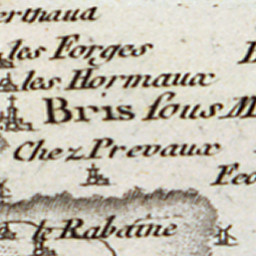 les Forges
les Hormaux
Bris sous M
Chez Prevaux
Fec
le Rabaine